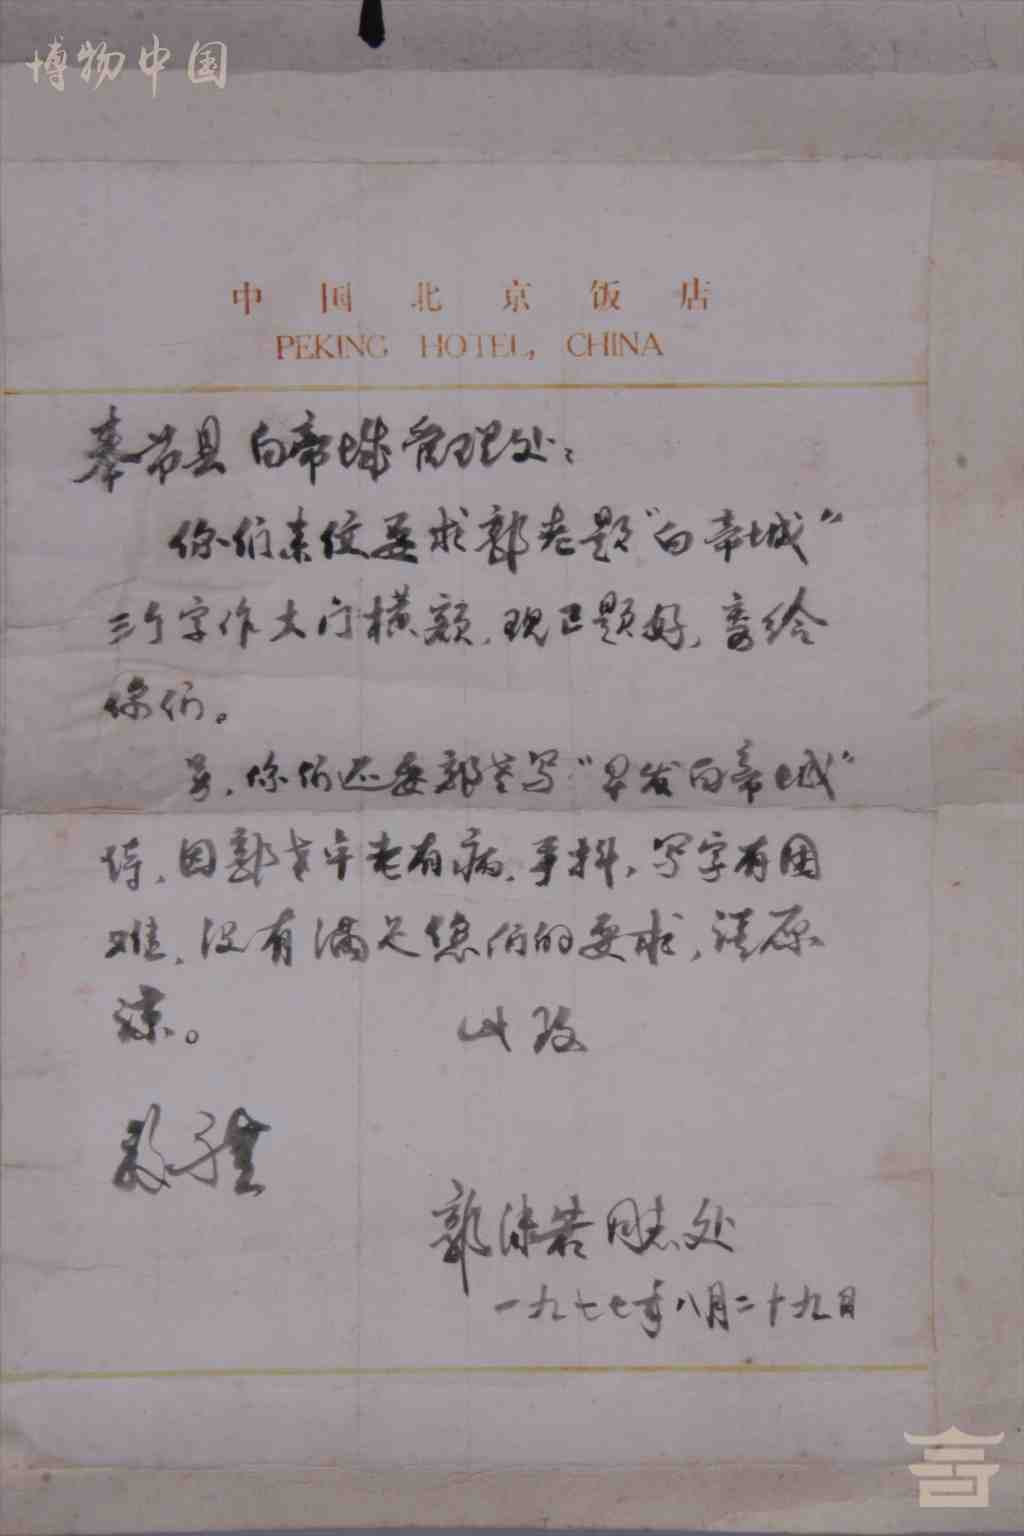 博物中国
中国北京饭店
PEKING HOTEL, CHINA
奉节县白帝城管理处：
你们来信要求郭老题“白帝城”
三个字作大门横额，现已题好，寄给
你们。
另，你们还要郭老写“早发白帝城”
诗，因郭老年老有病，手抖，写字有困
难，没有满足您们的要求，请原
谅。 此致
敬礼
郭沫若同志处
一九七七年八月二十九日